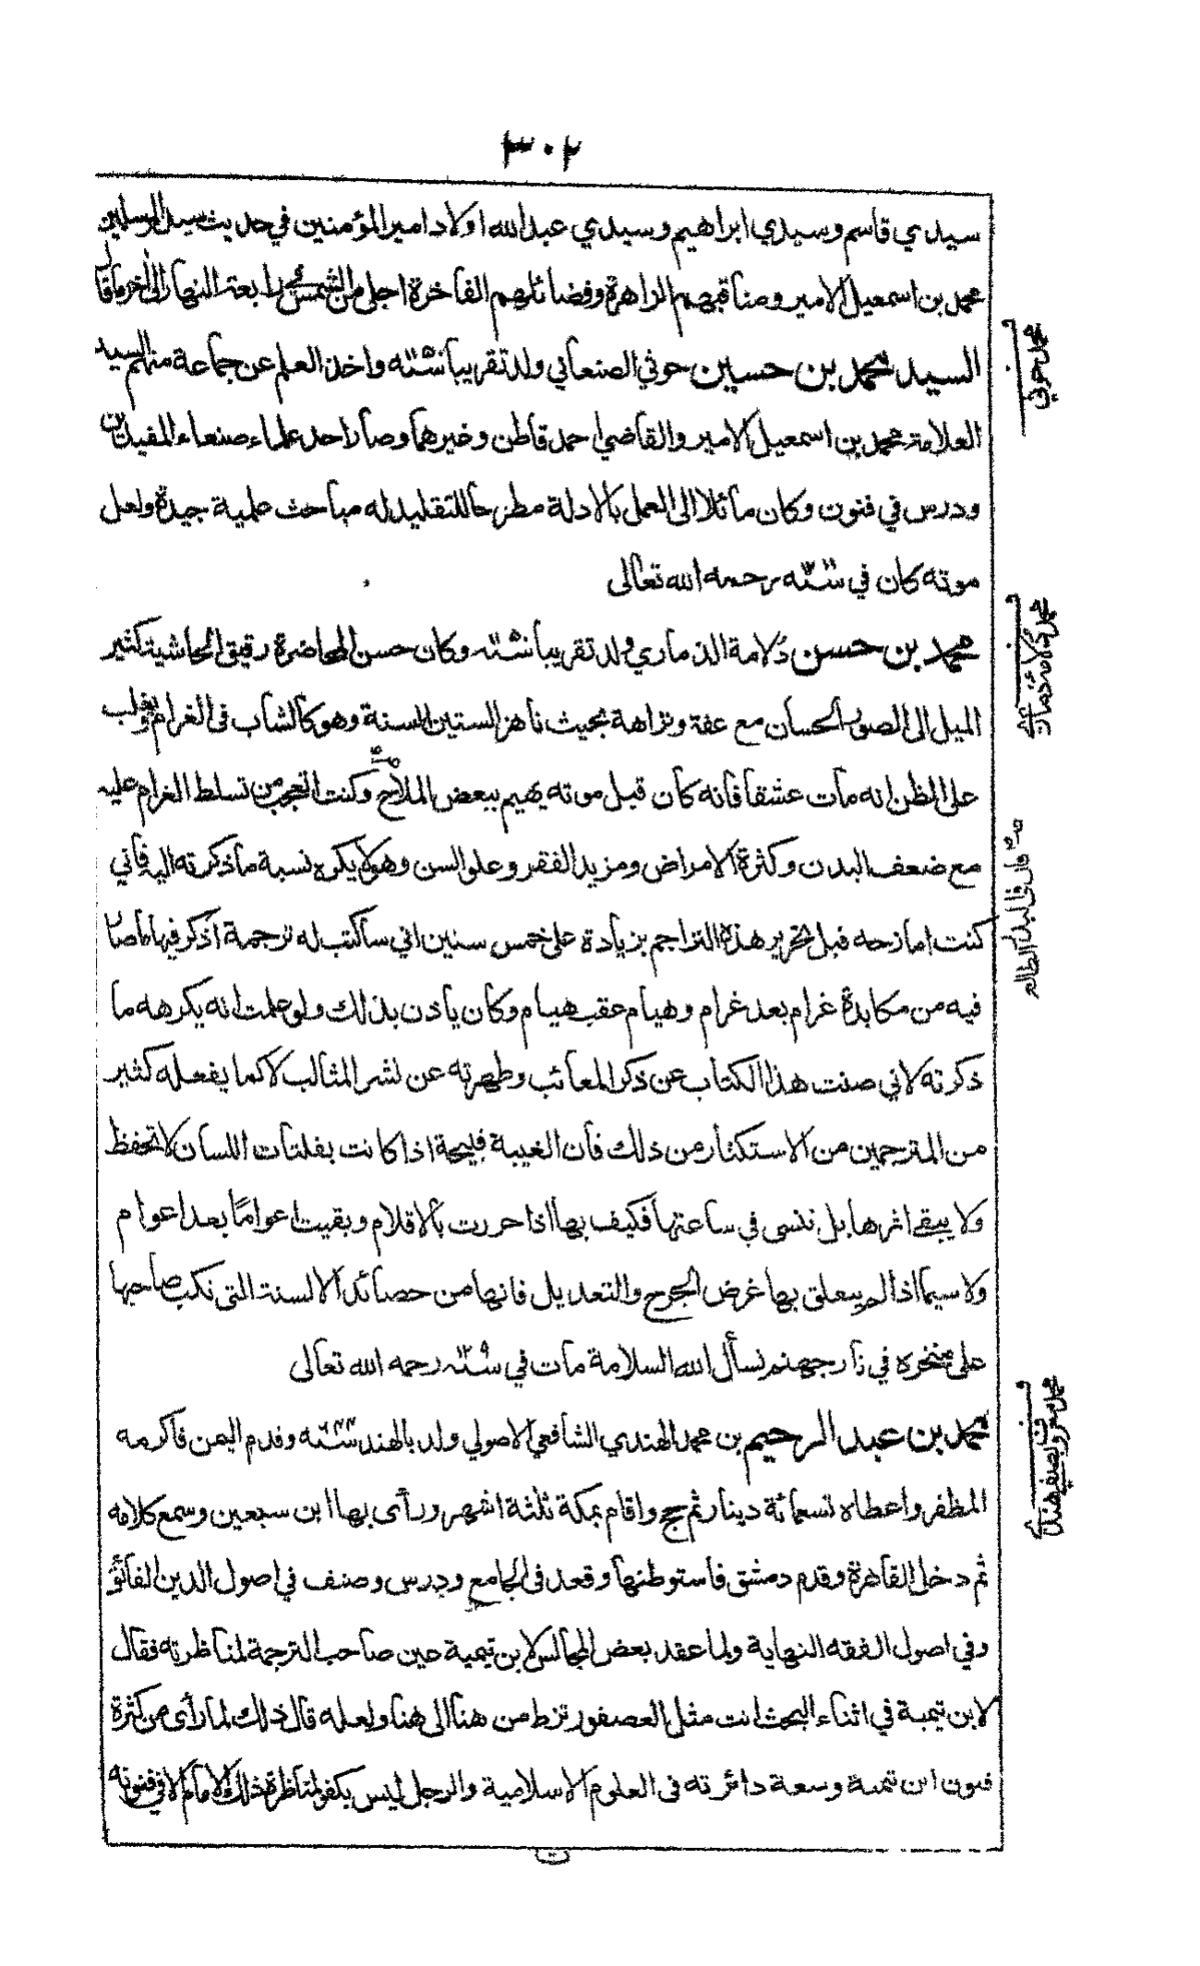 ٣٠٢
سيدي قاسم وسيدي ابراهيم وسيدي عبدالله اولاد امير المؤمنين في حديث سيد المرسلين
محمد بن اسمعيل الامير ومناقبهم الزاهرة وفضائلهم الفاخرة اجلى من الشمس رابعة النهار الى اخر ما قال
السيد محمد بن حسين حوثي الصنعاني ولد تقريبا سنة واخذ العلم عن جماعة منهم السيد
العلامة محمد بن اسمعيل الامير والقاضي احمد قاطن وغيرهما وصار احد علماء صنعاء المفيدين
ودرس في فنون وكان مائلا الى العمل بالادلة مطرحا للتقليد له مباحث علمية جيدة ولعل
موته كان في سنة رحمه الله تعالى
محمد بن حسن دلامة الذماري ولد تقريبا سنة وكان حسن المحاضرة رقيق الحاشية كثير
الميل الى الصور الحسان مع عفة ونزاهة بحيث ناهز الستين السنة وهو كالشاب في الغرام ويغلب
على الظن انه مات عشقا فانه كان قبل موته يهيم ببعض الملاح وكنت اتعجب من تسلط الغرام عليه
مع ضعف البدن وكثرة الامراض ومزيد الفقر وعلو السن وهو لا يكره نسبة ما ذكرته اليه فاني
كنت امازحه قبل تحرير هذه التراجم بزيادة على خمس سنين اني ساكتب له ترجمة اذكر فيها ما صار
فيه من مكابدة غرام بعد غرام وهيام عقب هيام وكان ياذن بذلك ولو علمت انه يكرهه ما
ذكرته لاني صنت هذا الكتاب عن ذكر المعائب وطهرته عن نشر المثالب لا كما يفعله كثير
من المترجمين من الاستكثار من ذلك فان الغيبة قبيحة اذا كانت بفلتات اللسان لا تحفظ
ولا يبقى اثرها بل ننسى في ساعتها فكيف بها اذا حررت بالاقلام وبقيت اعواما بعد اعوام
ولا سيما اذا لم يتعلق بها غرض الجرح والتعديل فانها من حصائد الالسنة التي تكب صاحبها
على منخره في نار جهنم نسأل الله السلامة مات في سنة رحمه الله تعالى
محمد بن عبد الرحيم بن محمد الهندي الشافعي الاصولي ولد بالهند سنة ٦٤٤ وقدم اليمن فاكرمه
المظفر واعطاه تسعمائة دينار ثم حج واقام بمكة ثلثة اشهر ورأى بها ابن سبعين وسمع كلامه
ثم دخل القاهرة وقدم دمشق فاستوطنها وقعد في الجامع ودرس وصنف في اصول الدين الفائق
وفي اصول الفقه النهاية ولما عقد بعض المجالس لابن تيمية عين صاحب الترجمة لمناظرته فقال
لابن تيمية في اثناء البحث انت مثل العصفور تزط من هنا الى هنا ولعله قال ذلك لما رأى من كثرة
فنون ابن تيمية وسعة دائرته في العلوم الاسلامية والرجل ليس بكفو لمناظرة ذلك الامام الا في فنونه
محمد حوثي
محمد دلامة ذماري
قال في البدر الطالع
محمد معروف بصفي هندي